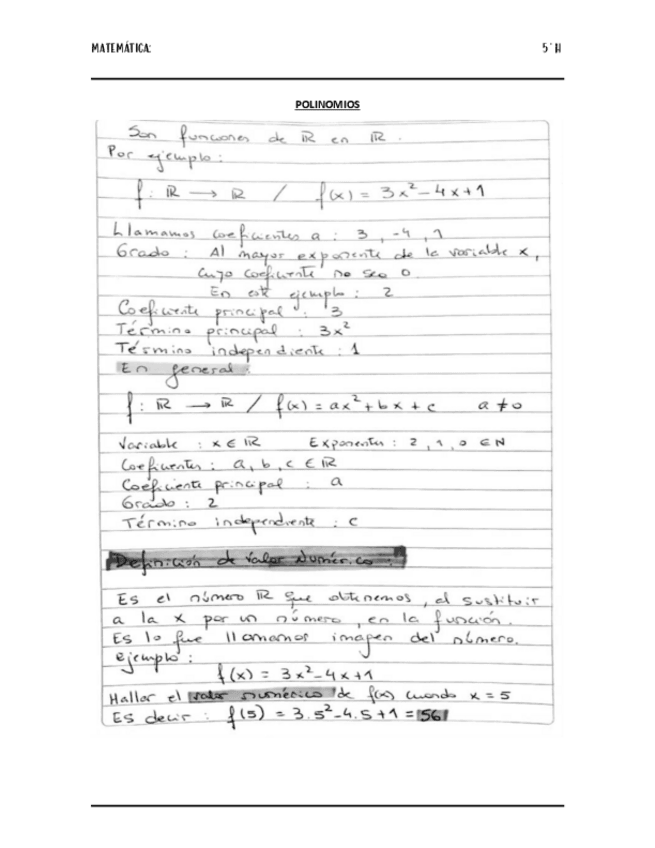 MATEMÁTICA: 5°H
POLINOMIOS
Son funciones de ℝ en ℝ.
Por ejemplo:
f: ℝ → ℝ / f(x) = 3x² - 4x + 1
Llamamos coeficientes a: 3, -4, 1
Grado: Al mayor exponente de la variable x,
cuyo coeficiente no sea 0.
En este ejemplo: 2
Coeficiente principal: 3
Término principal: 3x²
Término independiente: 1
En general:
f: ℝ → ℝ / f(x) = ax² + bx + c a ≠ 0
Variable: x ∈ ℝ Exponentes: 2, 1, 0 ∈ N
Coeficientes: a, b, c ∈ ℝ
Coeficiente principal: a
Grado: 2
Término independiente: c
Definición de Valor Numérico:
Es el número ℝ que obtenemos, al sustituir
a la x por un número, en la función.
Es lo que llamamos imagen del número.
ejemplo:
f(x) = 3x² - 4x + 1
Hallar el valor numérico de f(x) cuando x = 5
Es decir: f(5) = 3.5² - 4.5 + 1 = 56